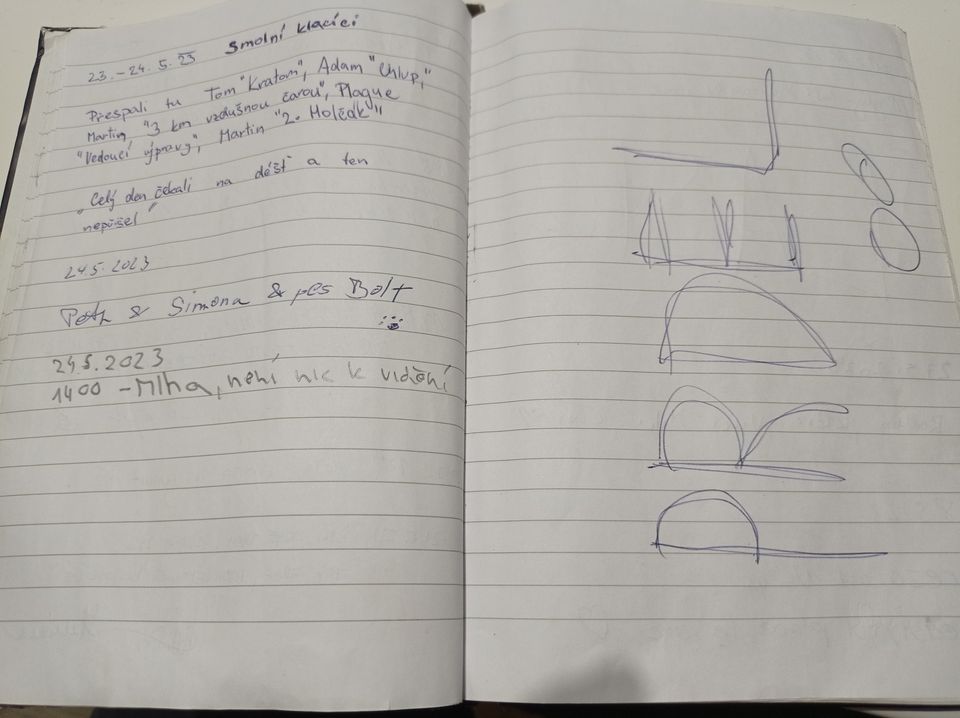 23.-24. 5. 23 Smolní klacíci
Přespali tu Tom "Kratom", Adam "Chlup",
Martin "3 km vzdušnou čarou", Plague
"Vedoucí výpravy", Martin "2. Holčák"
„Celý den čekali na déšť a ten
nepřišel“
24.5.2023
Petr & Simona & pes Bolt
24.5.2023
1400 - Mlha, není nic k vidění
PRDEL